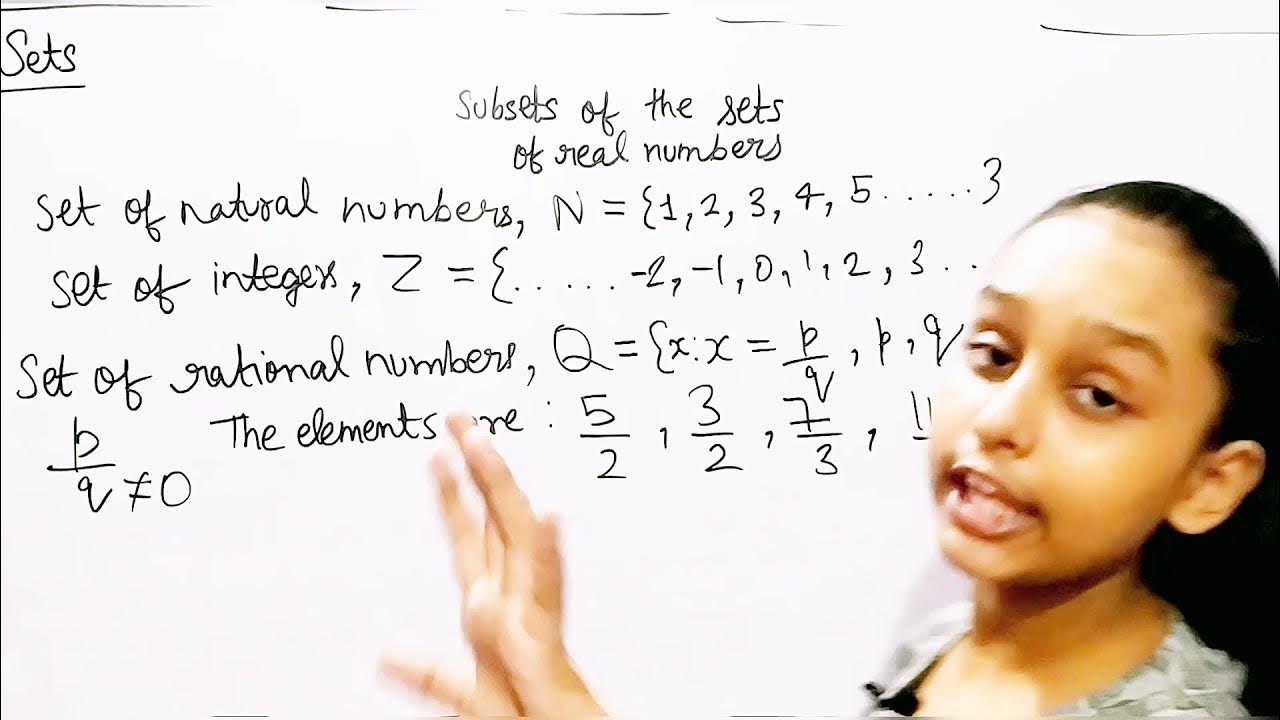 Sets
subsets of the sets
of real numbers
set of natural numbers, N = {1, 2, 3, 4, 5 ..... }
set of integers, Z = { ..... -2, -1, 0, 1, 2, 3 ..
set of rational numbers, Q = {x: x = p/q, p, q
The elements are : 5/2, 3/2, 7/3,
p/q ≠ 0